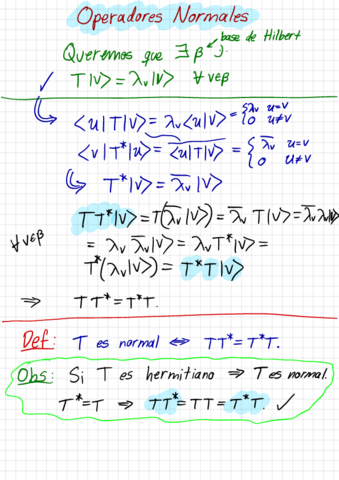 Operadores Normales
base de Hilbert
Queremos que ∃ β
T|v⟩ = λᵥ|v⟩ ∀ v∈β
⟨u|T|v⟩ = λᵥ⟨u|v⟩ = { λᵥ u=v
0 u≠v
⟨v|T*|u⟩ = \overline{⟨u|T|v⟩} = { \overline{λᵥ} u=v
0 u≠v
T*|v⟩ = \overline{λᵥ}|v⟩
TT*|v⟩ = T(\overline{λᵥ}|v⟩) = \overline{λᵥ} T|v⟩ = \overline{λᵥ}λᵥ|v⟩
∀ v∈β = λᵥ\overline{λᵥ}|v⟩ = λᵥT*|v⟩ =
T*(λᵥ|v⟩) = T*T|v⟩
⇒ TT* = T*T.
Def: T es normal ⇔ TT* = T*T.
Obs: Si T es hermitiano ⇒ T es normal.
T* = T ⇒ TT* = TT = T*T. ✓